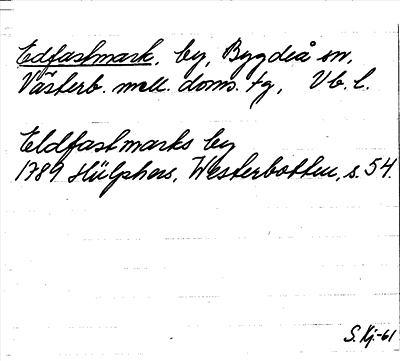 Edfastmark, by, Bygdeå sn,
Västerb. mell. doms. tg, Vb. l.
Eldfastmarks by
1789 Hülphers, Westerbotten, s. 54.
S. Kj-61